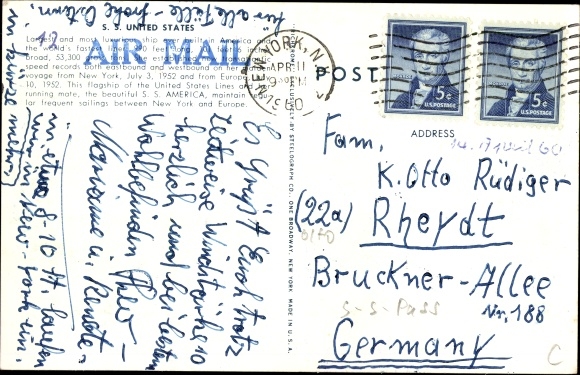 für alle Fälle - frohe Ostern,
S. S. UNITED STATES
Largest and most luxurious ship ever built in America
the world's fastest
53,300
speed records both eastbound and westbound on her
voyage from New York, July 3, 1952 and from Europe
10, 1952. This flagship of the United States Lines
running mate, the beautiful S. S. AMERICA, maintain
lar frequent sailings between New York and Europe.
AIR MAIL
12
NEW YORK, N.Y.
APR 11
9 PM
1960
5¢
U.S. POSTAGE
5¢
U.S. POSTAGE
POST
ADDRESS
14. April 60
Fam.
K. Otto Rüdiger
(22a) Rheydt
Bruckner-Allee
Nr. 188
Germany
S-S-Pass
C
EXCLUSIVELY BY STEELOGRAPH CO., ONE BROADWAY, NEW YORK. MADE IN U.S.A.
Es grüßt Euch trotz
zeitweise Windstärke 10
herzlich und bei bestem
Wohlbefinden Theo -
Marianne u. Renate.
In etwa 8-10 St. laufen
wir in New-York ein.
in Kürze mehr)